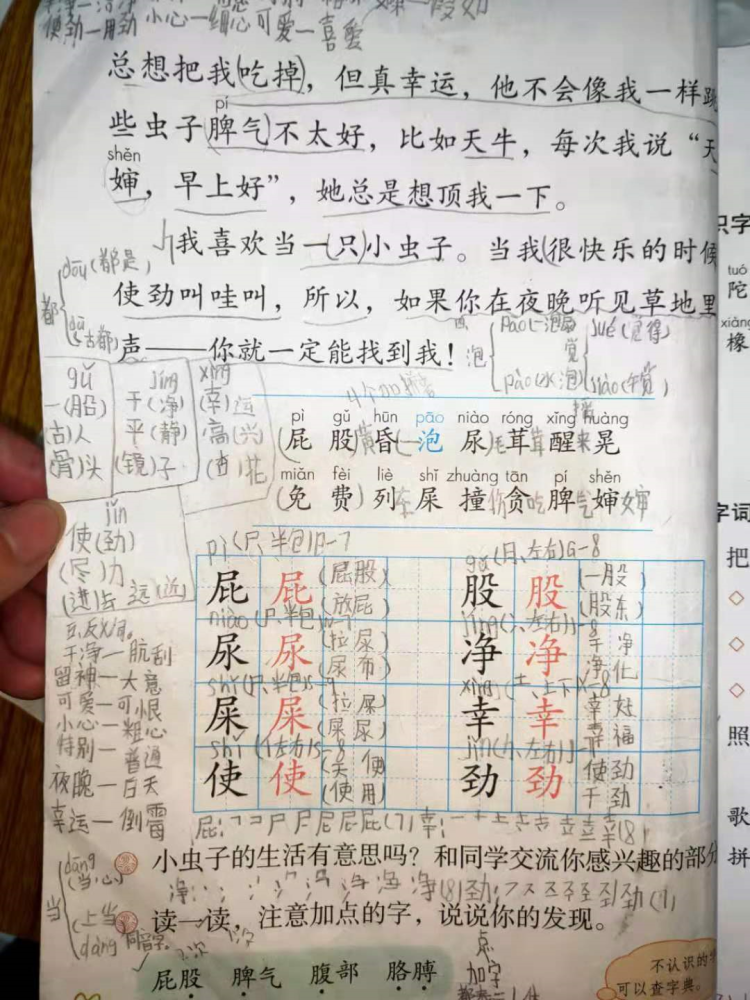 使劲—用劲 小心—细心 可爱—喜爱
总想把我吃掉，但真幸运，他不会像我一样跳
pí
些虫子脾气不太好，比如天牛，每次我说“天
shěn
婶，早上好”，她总是想顶我一下。
我喜欢当一只小虫子。当我很快乐的时候
都 dōu(都是)
dū(古都)
使劲叫哇叫，所以，如果你在夜晚听见草地里
声——你就一定能找到我！
泡 pāo(一泡
pào(水泡)
觉 jué(觉得)
jiào(午觉)
gǔ
一(股)
(古)人
(骨)头
jìng
干(净)
平(静)
(镜)子
xìng
(幸)运
高(兴)
(杏)花
pì gǔ hūn pāo niào róng xǐng huàng
屁 股 黄昏 一泡 尿 毛茸茸 醒来 晃
miǎn fèi liè shǐ zhuàng tān pí shěn
免 费 列车 屎 撞伤 贪吃 脾气 婶婶
jìn
使(劲)
(尽)力
(进)步 远(近)
pì(尸、半包)P-7
屁 屁 (屁股)
(放屁)
gǔ(月、左右)G-8
股 股 (一股)
(股东)
niào(尸、半包)N-7
尿 尿 (拉尿)
(尿布)
jìng(冫、左右)J-8
净 净 干净
净化
shǐ(尸、半包)S-9
屎 屎 (拉屎)
(屎尿)
xìng(土、上下)X-8
幸 幸 幸好
幸福
shǐ(亻左右)S-8
使 使 (天使)
(使用)
jìn(力、左右)J-7
劲 劲 使劲
干劲
五、反义词。
干净—肮刮
留神—大意
可爱—可恨
小心—粗心
特别—普通
夜晚—白天
幸运—倒霉
小虫子的生活有意思吗？和同学交流你感兴趣的部分
当 dāng
(当心)
(上当)
dàng
读一读，注意加点的字，说说你的发现。
同音字。
屁股 脾气 腹部 胳膊
点
加字
不认识的字
可以查字典。
识字
tuó
陀
xiàng
橡
字词
把
照
歌
拼